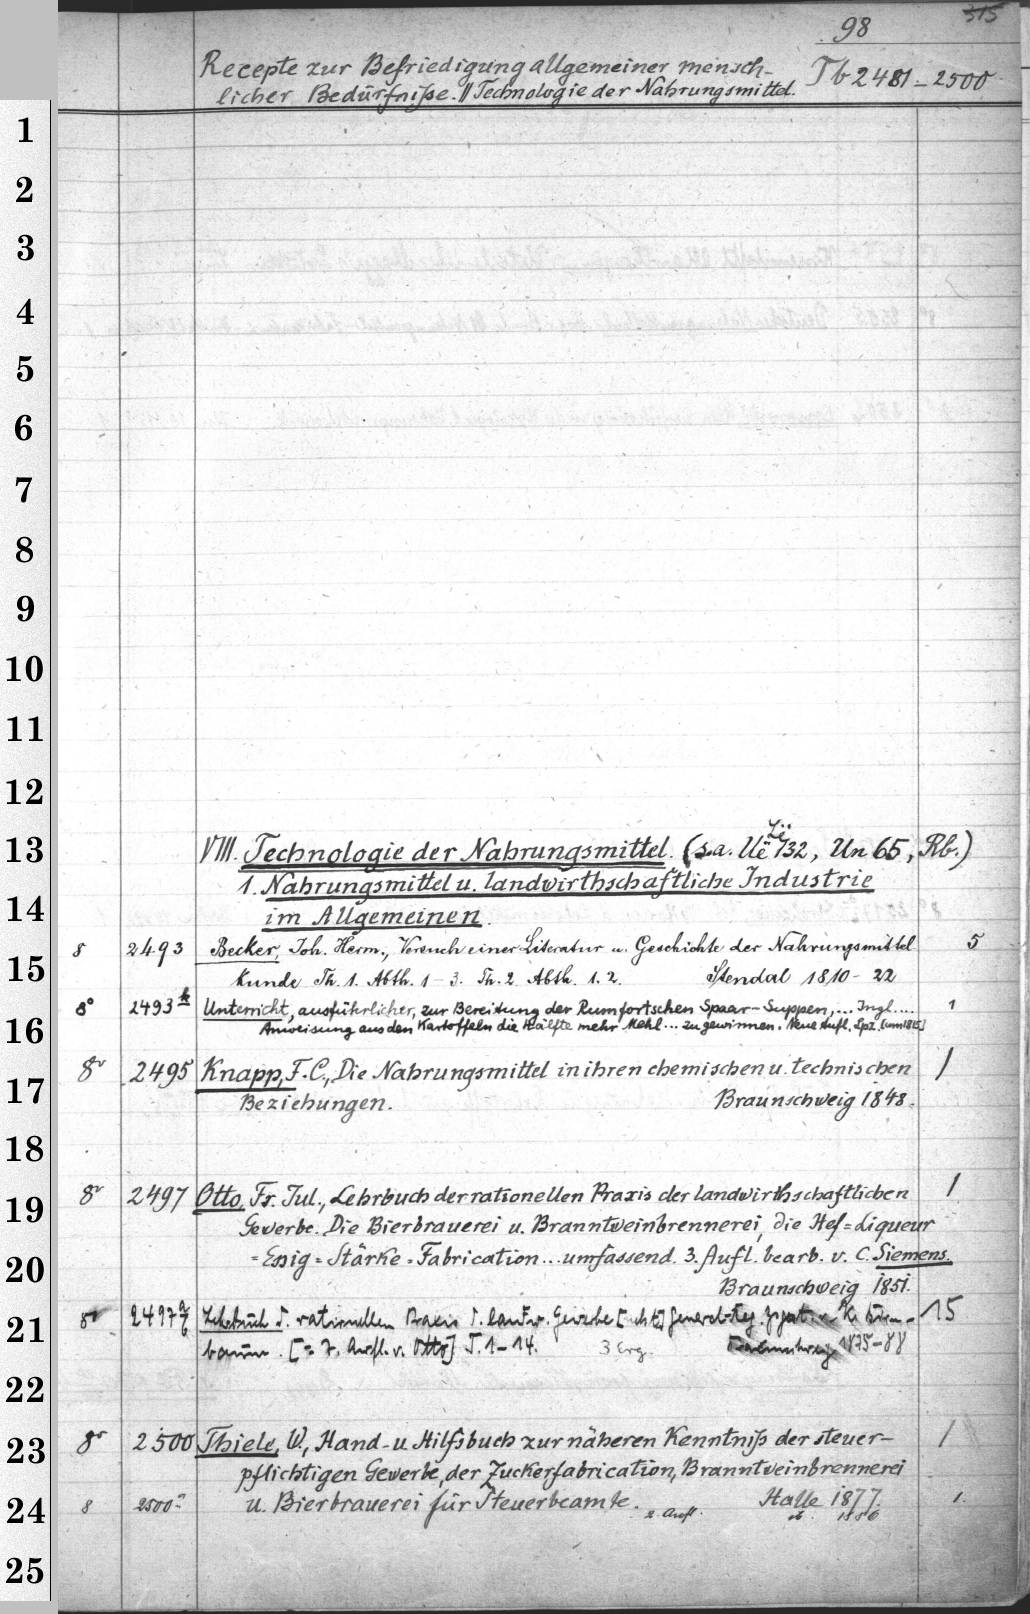 98 315
Recepte zur Befriedigung allgemeiner mensch-
licher Bedürfniße. // Technologie der Nahrungsmittel. Tb 2481-2500
1
2
3
4
5
6
7
8
9
10
11
12
Zë
13 VIII. Technologie der Nahrungsmittel. (s.a. Uë 732, Un 65, Rb.)
1. Nahrungsmittel u. landwirthschaftliche Industrie
14 im Allgemeinen.
8 2493 Becker, Joh. Herm., Versuch einer Literatur u. Geschichte der Nahrungsmittel 5
15 kunde Th. 1. Abth. 1-3. Th. 2. Abth. 1. 2. Stendal 1810-22
8° 2493 Unterricht, ausführlicher, zur Bereitung der Rumfortschen Spaar-Suppen, ... Ingl. .... 1
16 Anweisung aus den Kartoffeln die Hälfte mehr Mehl ... zu gewinnen. Neue Aufl. Lpz. [um 1815]
8° 2495 Knapp, F. C., Die Nahrungsmittel in ihren chemischen u. technischen 1
17 Beziehungen. Braunschweig 1848.
18
8° 2497 Otto, Fr. Jul., Lehrbuch der rationellen Praxis der landwirthschaftlichen 1
19 Gewerbe. Die Bierbrauerei u. Branntweinbrennerei, die Hef=Liqueur
20 =Essig=Stärke=Fabrication ... umfassend. 3. Aufl. bearb. v. C. Siemens.
Braunschweig 1851.
8° 2497 Lehrbuch d. rationellen Praxis d. landw. Gewerbe 15
21 baum. [= 7. Aufl. v. Otto] T. 1-14. 3 Erg. Braunschweig 1875-88
22
8° 2500 Thiele, W., Hand- u. Hilfsbuch zur näheren Kenntniß der steuer- 1
23 pflichtigen Gewerbe, der Zuckerfabrication, Branntweinbrennerei
24 u. Bierbrauerei für Steuerbeamte. Halle 1877.
8 2500 2. Aufl. eb. 1886 1.
25